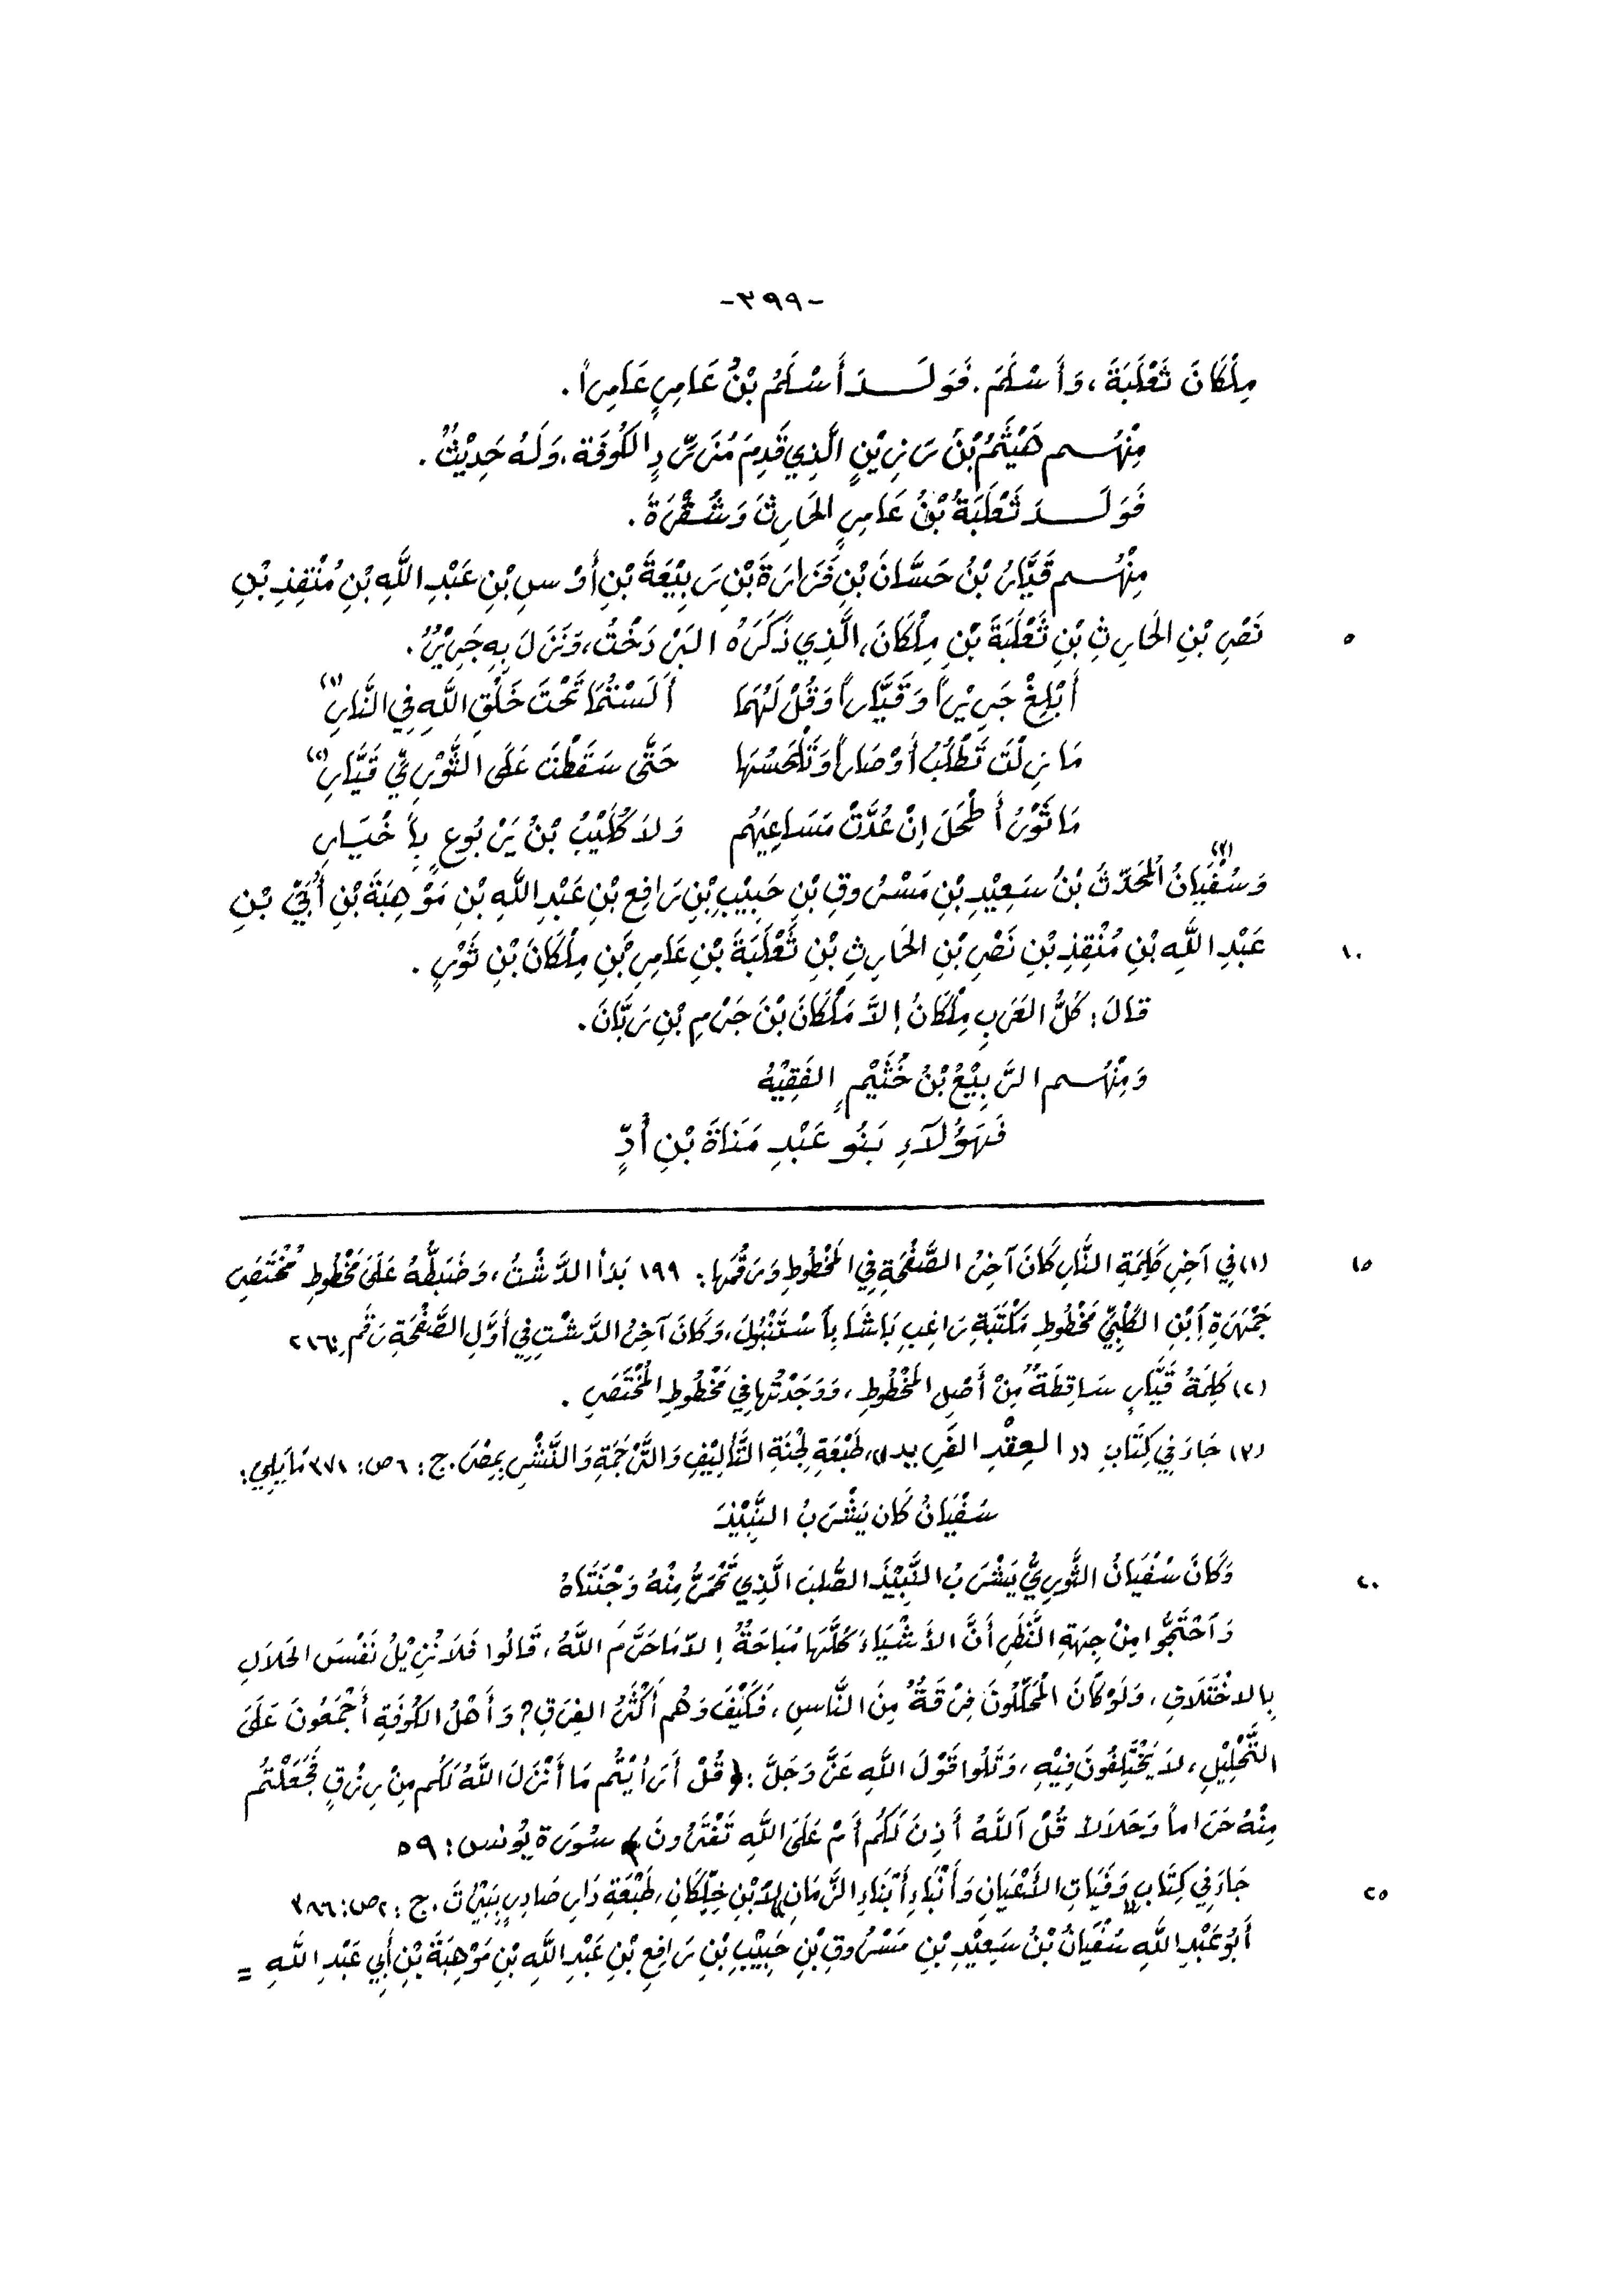 -٣٩٩-
مِلْكَانَ ثَعْلَبَةَ، وَأَسْلَمَ. فَوَلَدَ أَسْلَمُ بْنُ عَامِرٍ عَامِراً.
مِنْهُم هَيْثَمُ بْنُ رَزِيْنٍ الَّذِي قَدِمَ مَنْ رَّدِ الكُوفَةِ، وَلَهُ حَدِيْثٌ.
فَوَلَدَ ثَعْلَبَةُ بْنُ عَامِرٍ الحَارِثَ وَشُقْرَةَ.
مِنْهُم قَيَّارُ بْنُ حَسَّانَ بْنِ فَزَارَةَ بْنِ رَبِيْعَةَ بْنِ أَوْسِ بْنِ عَبْدِ اللَّهِ بْنِ مُنْقِذِ بْنِ
نَصْرِ بْنِ الحَارِثِ بْنِ ثَعْلَبَةَ بْنِ مِلْكَانَ، الَّذِي ذَكَرَهُ البَرْدَخْتُ، وَنَزَلَ بِهِ جَرِيْرٌ. ٥
أَبْلِغْ جَرِيْراً وَقَيَّاراً وَقُلْ لَهُمَا أَلَسْتُمَا تَحْتَ خَلْقِ اللَّهِ فِي النَّارِ (١)
مَا زِلْتَ تَطْلُبُ أَوْضَاراً وَتَلْحَسُهَا حَتَّى سَقَطْتَ عَلَى الثَّوْرِيِّ قَيَّارِ (٢)
مَا ثَوْرُ أَطْحَلَ إِنْ عُدَّتْ مَسَاعِيَهُم وَلاَ كُلَيْبُ بْنُ يَرْبُوعٍ بِأَخْيَارِ
وَسُفْيَانُ (٣) المُحَدِّثُ بْنُ سَعِيْدِ بْنِ مَسْرُوقِ بْنِ حَبِيْبِ بْنِ رَافِعِ بْنِ عَبْدِ اللَّهِ بْنِ مَوْهِبَةَ بْنِ أُبَيِّ بْنِ
عَبْدِ اللَّهِ بْنِ مُنْقِذِ بْنِ نَصْرِ بْنِ الحَارِثِ بْنِ ثَعْلَبَةَ بْنِ عَامِرِ بْنِ مِلْكَانَ بْنِ ثَوْرٍ. ١٠
قالَ: كُلُّ العَرَبِ مِلْكَانُ إلاَّ مَلْكَانَ بْنَ جَرْمِ بْنِ رَبَّانَ.
وَمِنْهُم الرَّبِيْعُ بْنُ خُثَيْمٍ الفَقِيْهُ
فَهَؤُلآَءِ بَنُو عَبْدِ مَنَاةَ بْنِ أُدٍّ
(١) فِي آخِرِ كَلِمَةِ النَّارِ كَانَ آخِرُ الصَّفْحَةِ فِي المَخْطُوطِ وَرَقْمُهَا: ١٩٩ بَدَأ الدَّشْتُ، وَضَبَطُّهُ عَلَى مَخْطُوطِ مُخْتَصَرِ ١٥
جَمْهَرَةِ اَبْنِ الكَلْبِيِّ مَخْطُوطِ مَكْتَبَةِ رَاغِبِ بَاشَا بِاَسْتَنْبُولَ، وَكَانَ آخِرُ الدَّشْتِ فِي أَوَّلِ الصَّفْحَةِ رَقْمِ: ٢١٦
(٢) كَلِمَةُ قَيَّارٍ سَاقِطَةٌ مِنْ أَصْلِ المَخْطُوطِ، وَوَجَدْتُهَا فِي مَخْطُوطِ المُخْتَصَرِ.
(٣) جَاءَ فِي كِتَابِ «العِقْدِ الفَرِيدِ» طَبْعَةِ لَجْنَةِ التَّأْلِيْفِ وَالتَّرْجَمَةِ وَالنَّشْرِ بِمِصْرَ. ج: ٦ ص: ٣٧١ مَايَلِي:
سُفْيَانُ كَان يَشْرَبُ النَّبِيْذَ
وَكَانَ سُفْيَانُ الثَّورِيُّ يَشْرَبُ النَّبِيْذَ الصُّلبَ الَّذِي تَحْمَرُّ مِنْهُ وَجْنَتَاهُ ٢٠
وَاَحْتَجُّوا مِنْ جِهَةِ النَّظَرِ أَنَّ الأَشْيَاءَ كُلَّهَا مُبَاحَةٌ إِلاَّ مَا حَرَّمَ اللَّهُ، قَالُوا فَلاَ نُزِيْلُ نَفْسَ الحَلاَلِ
بِالاخْتَلاَفِ، وَلَوْ كَانَ المُحَلِّلُونَ فِرْقَةً مِنَ النَّاسِ، فَكَيْفَ وَهُم أَكْثَرُ الفِرَقِ؟ وَأَهْلُ الكُوفَةِ أَجْمَعُونَ عَلَى
التَّحْلِيْلِ، لاَ يَخْتَلِفُونَ فِيْهِ، وَتَلُوا قَوْلَ اللَّهِ عَزَّ وَجَلَّ: ﴿ قُلْ أَرَأَيْتُم مَا أَنْزَلَ اللَّهُ لَكُم مِنْ رِزْقٍ فَجَعَلْتُم
مِنْهُ حَرَاماً وَحَلاَلاً قُلْ آللَّهُ أَذِنَ لَكُم أَمْ عَلَى اللَّهِ تَفْتَرُونَ ﴾ سُورَة يُونس: ٥٩
جَاءَ فِي كِتَابِ «وَفَيَاتِ الأَعْيَانِ وَأَنْبَاءِ أَبْنَاءِ الزَّمَانِ» لِابْنِ خِلِّكَانِ، طَبْعَةِ دَارِ صَادِرٍ بِبَيْرُتَ. ج: ٢ ص: ٣٨٦ ٢٥
أَبُو عَبْدِ اللَّهِ سُفْيَانُ بْنُ سَعِيْدِ بْنِ مَسْرُوقِ بْنِ حَبِيْبِ بْنِ رَافِعِ بْنِ عَبْدِ اللَّهِ بْنِ مَوْهِبَةَ بْنِ أَبِي عَبْدِ اللَّهِ =